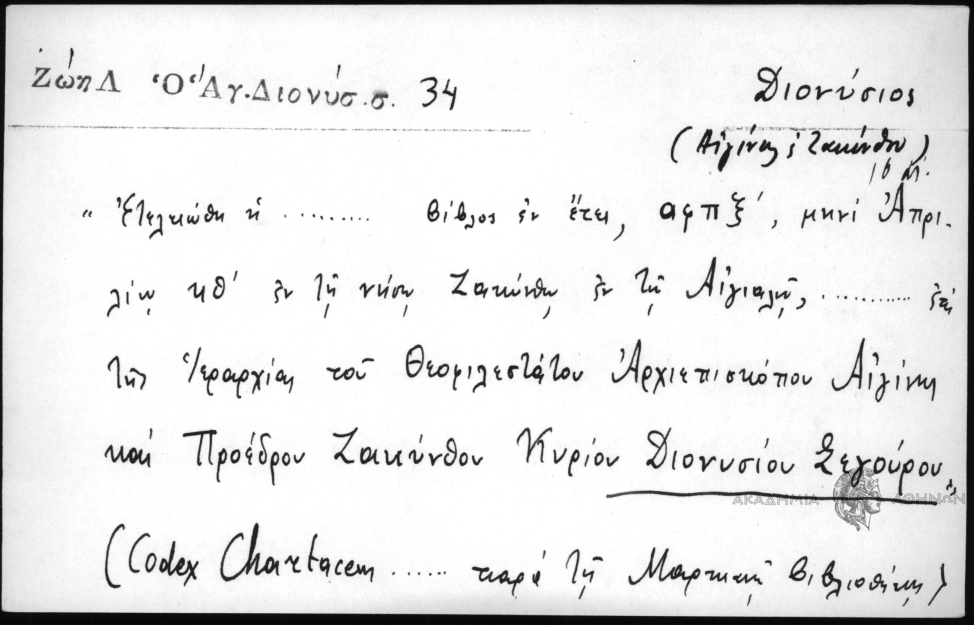 Ζώη Λ Ὁ Ἅγ. Διονύσ. σ. 34
Διονύσιος
(Αἰγίνης & Ζακύνθου)
16 αἰ.
"Ἐτελειώθη ἡ ......... βίβλος ἐν ἔτει, αφπξ', μηνί Ἀπρι-
λίῳ κθ' ἐν τῇ νήσῳ Ζακύνθῳ ἐν τῇ Αἰγιαλῇ, .......... ἐπί
τῆς Ἱεραρχίας τοῦ Θεοφιλεστάτου Ἀρχιεπισκόπου Αἰγίνης
καί Προέδρου Ζακύνθου Κυρίου Διονυσίου Σεγούρου"
ΑΚΑΔΗΜΙΑ ΑΘΗΝΩΝ
(Codex Chartaceus ...... παρά τῇ Μαρκιανῇ βιβλιοθήκῃ)